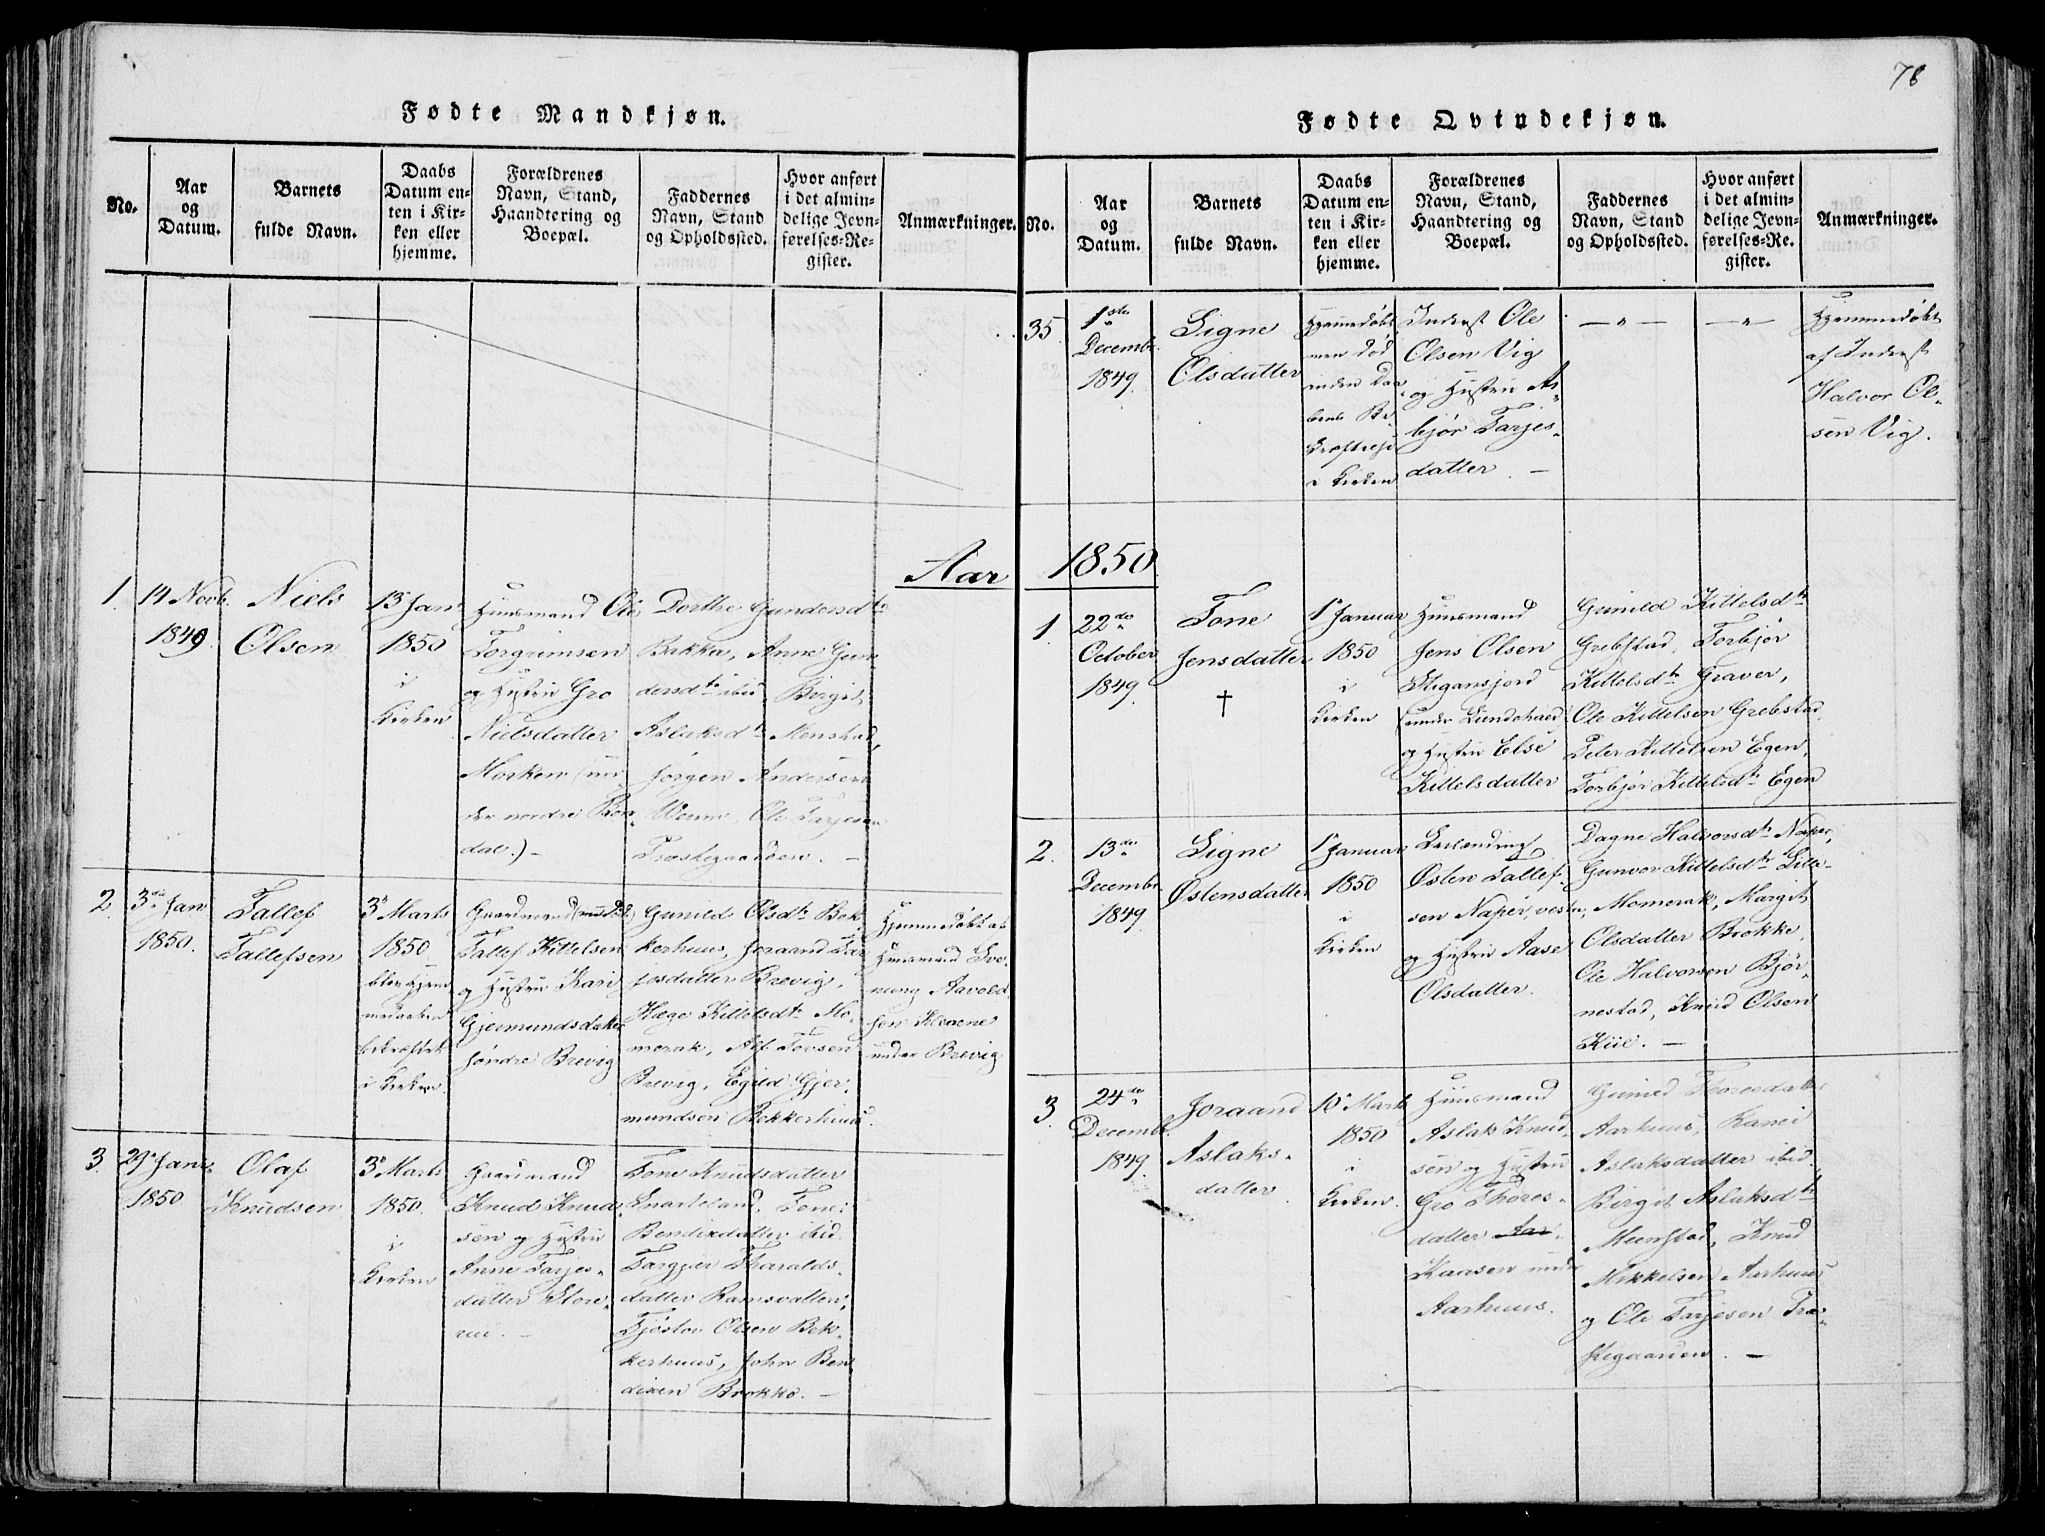 78
Fødte Mandkjøn.
No.
Aar
og
Datum.
Barnets
fulde Navn.
Daabs
Datum en-
ten i Kir-
ken eller
hjemme.
Forældrenes
Navn, Stand,
Haandtering og
Boepæl.
Faddernes
Navn, Stand
og Opholdssted.
Hvor anført
i det almin-
delige Jevn-
førelses-Re-
gister.
Anmærkninger.
Aar
1.
14 Novb.
1849.
Niels
Olsen
13 Jan
1850
i
Kirken
Huusmand Ole
Torgrimsen
og Hustru Gro
Nielsdatter
Morken (un-
der nordre
dal.) –
Dorthe Gundersdtr
Bakka, Anne Gun
dersdtr ibid, Birgit
Aslaksdtr Menstad,
Jørgen Andersen
Ole Tarjesen
–
2.
3die Jan
1850.
Tallef
Tallefsen
3 Marts
1850
blev hjem-
medøbt
bekræftet
i Kirken
Gaardmand
Tallef Kittelsen
og Hustru Kari
Gjermundsdatter
søndre Brevig
Gunild Olsdtr Bek-
kerhuus, Joraand Tar
jesdatter Brevig,
Hæge Kittelsdtr Mo-
merak, Alf Tovsen
Brevig, Egild Gjer-
mundsen Bekkerhuus.
Hjemmedøbt af
Huusmand Sve-
nung
under Brevig
3.
29 Jan
1850
Olaf
Knudsen
3 Marts
1850.
i
Kirken
Gaardmand
Knud Knud-
sen og Hustru
Anne Tarjes-
datter Store-
–
Tone Knudsdatter
Snarteland, Tone
Bendixdatter ibid
Targjer Tharalds-
datter Ramsvatten,
Tjøstov Olsen Bek-
kerhuus, John Ben
dixen Brokke. –
Fødte Qvindekjøn.
No.
Aar
og
Datum.
Barnets
fulde Navn.
Daabs
Datum en-
ten i Kir-
ken eller
hjemme.
Forældrenes
Navn, Stand,
Haandtering og
Boepæl.
Faddernes
Navn, Stand
og Opholdssted.
Hvor anført
i det almin-
delige Jevn-
førelses-Re-
gister.
Anmærkninger.
35.
1ste
Decembr.
1849.
Signe
Olsdatter
Hjemmedøbt
men død
inden Daa-
bens Be-
kræftelse
i Kirken
Inderst Ole
Olsen Vig
og Hustru As-
bjør Tarjes-
datter. –
— " —
— " —
Hjemmedøbt
af Inderst
Halvor Ol-
sen Vig.
1850
1.
22de
October
1849.
Tone
Jensdatter
†
1 Januar
1850
i
Kirken
Huusmand
Jens Olsen
Stigansjord
og Hustru Else
Kittelsdatter
Gunild Kittelsdtr
Grebstad, Torbjør
Kittelsdtr Graver,
Ole Kittelsen Grebstad,
Peter Kittelsen Egen,
Torbjør Kittelsdtr Egen
2.
13de
Decembr.
1849
Signe
Østensdatter
1 Januar
1850
i
Kirken
Østen Tallef-
sen Naper, vestre,
og Hustru Aase
Olsdatter.
Dagne Halvorsdtr Naper,
Gunvor Kittelsdtr Lille-
Momerak, Margit
Olsdatter Brokke,
Ole Halvorsen Bjør-
nestad, Knud Olsen
Kiil. –
3.
24de
Decembr.
1849.
Joraand
Aslaks-
datter
10 Marts
1850
i
Kirken.
Huusmand
Aslak Knud-
sen og Hustru
Gro Thores-
datter
Kaasen under
Aarhuus.
Gunild Thoresdatter
Aarhuus,
Aslaksdatter ibid.
Birgit Aslaksdtr
Meenstad, Knud
Mikkelsen Aarhuus
og Ole Tarjesen Træ-
–